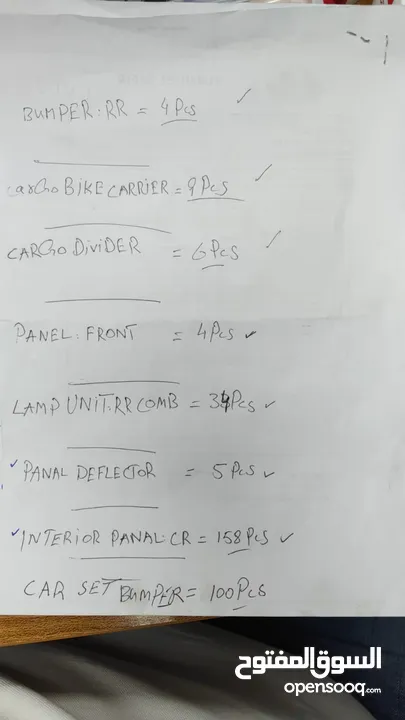 BUMPER:RR = 4 Pcs
CARGO BIKE CARRIER = 9 Pcs
CARGO DIVIDER = 6 Pcs
PANEL:FRONT = 4 Pcs
LAMP UNIT:RR COMB = 34 Pcs
PANAL DEFLECTOR = 5 Pcs
INTERIOR PANAL:CR = 158 Pcs
CAR SET BUMPER = 100 Pcs
السوق المفتوح
opensooq.com